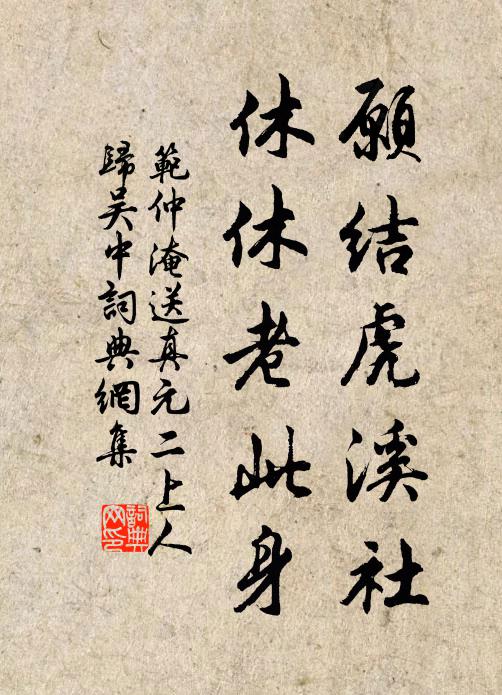 願结虎溪社
休休老此身
範仲淹送真元二上人
歸吴中詞典網集
詞典
网印